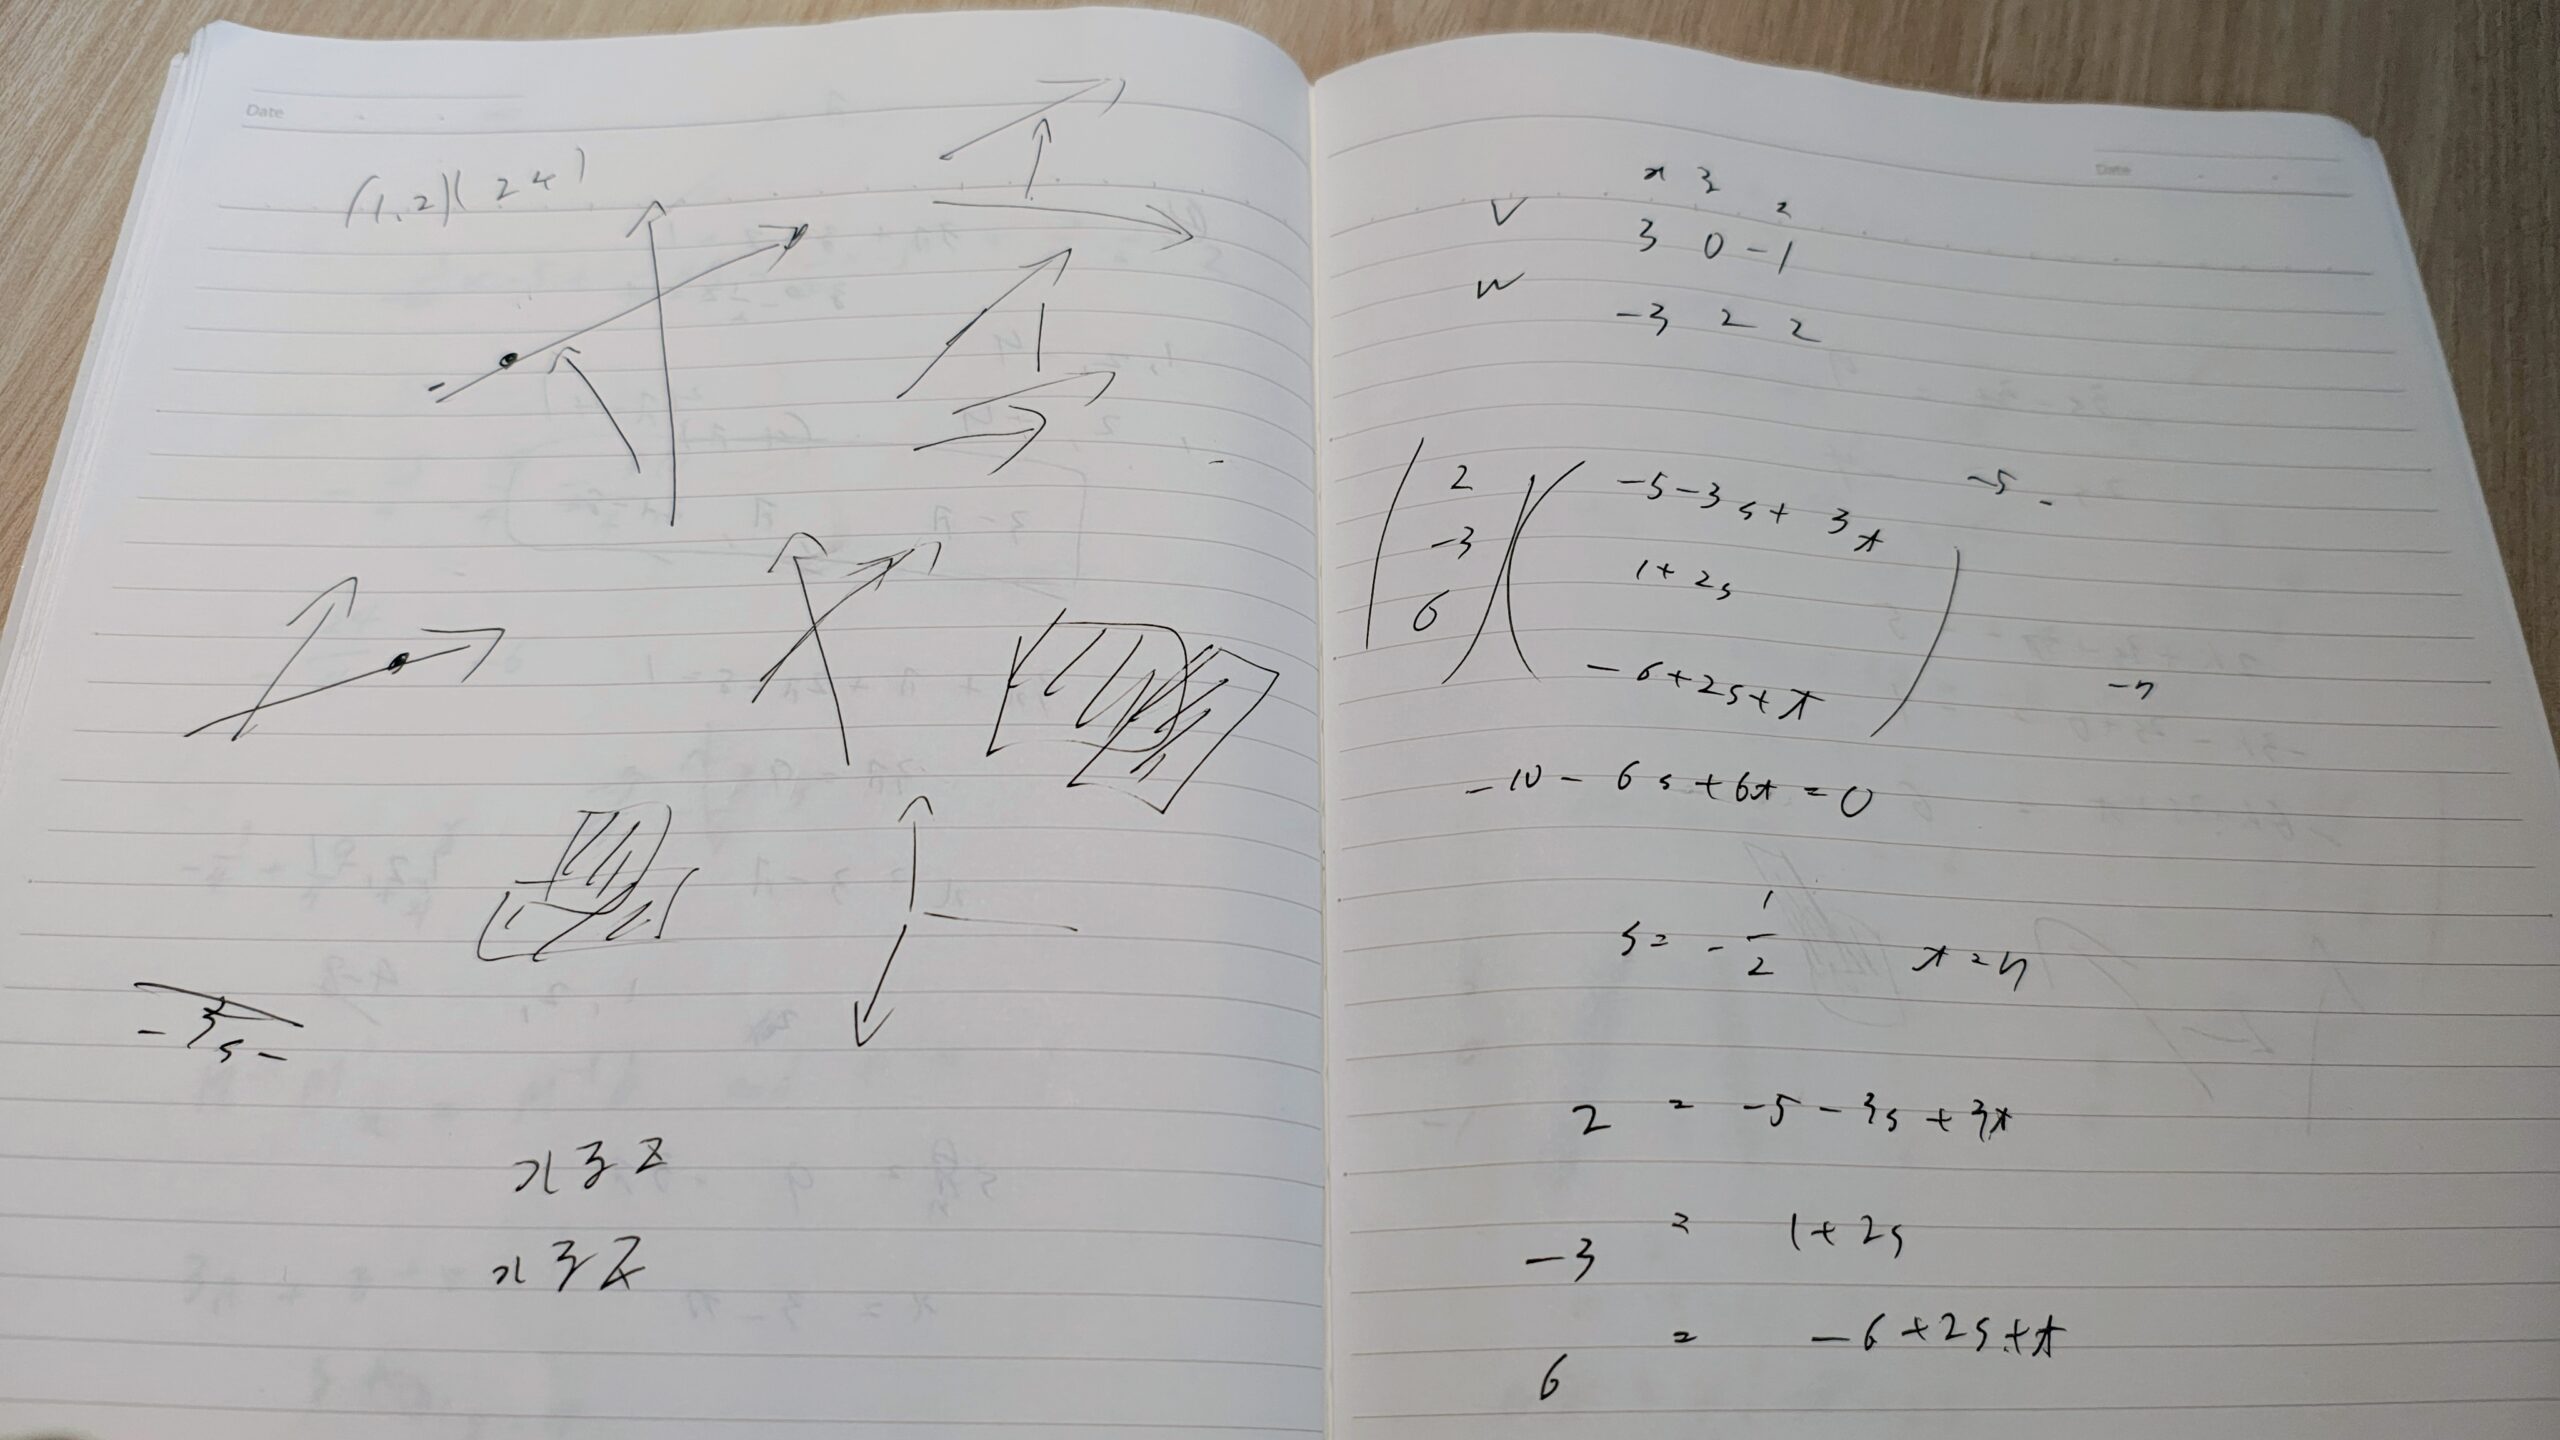 Date
(1,2)(2 4)
-3s-
x y z
x y z
Date
x y z
V 3 0 -1
w -3 2 2
2 -5-3s+3t -5-
-3 1+2s
6 -6+2s+t
-10-6s+6t=0
s=-1/2
2 = -5-3s+3t
-3 = 1+2s
6 = -6+2s+t